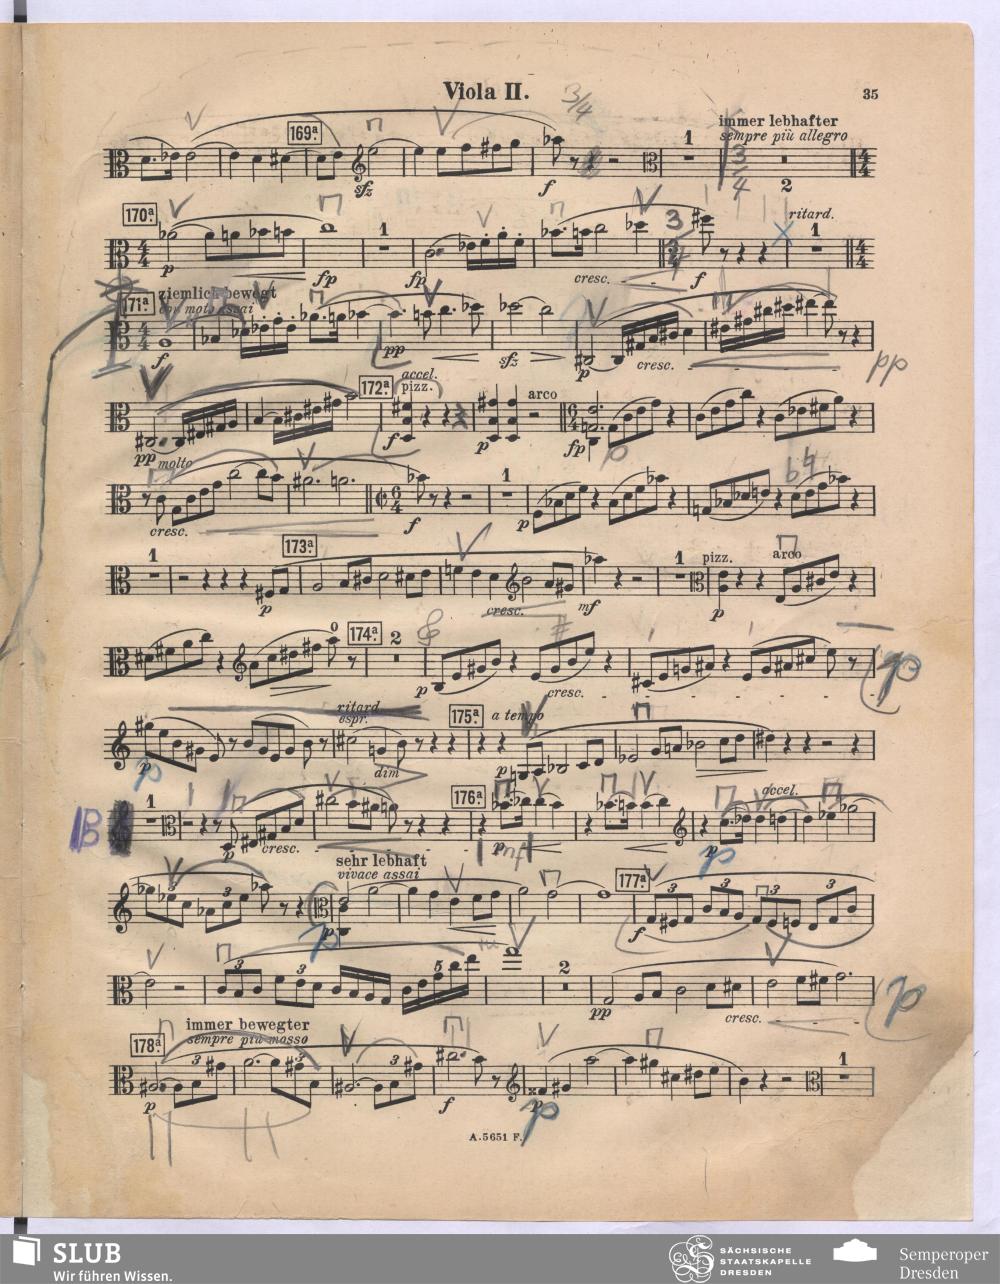 Viola II.
35
3/4
169ª
sfz
f
1
immer lebhafter
sempre più allegro
3
4
2
4
4
170ª
4
4
p
fp
1
fp
cresc.
3
4
f
ritard.
1
4
4
171ª
ziemlich bewegt
con moto assai
4
4
f
pp
sfz
p
cresc.
pp
pp molto
172ª
accel.
pizz.
f
p
arco
6
4
fp
p
cresc.
6
4
f
1
p
1
173ª
p
cresc.
mf
1
pizz.
p
arco
174ª
2
p
cresc.
p
ritard.
espr.
p
dim
175ª
a tempo
p
B
1
p
cresc.
176ª
p
accel.
p
3
3
sehr lebhaft
vivace assai
p
177ª
f
3
3
3
3
3
3
5
2
pp
cresc.
p
178ª
immer bewegter
sempre più mosso
p
3
3
3
f
p
1
A.5651 F.
SLUB
Wir führen Wissen.
SÄCHSISCHE
STAATSKAPELLE
DRESDEN
Semperoper
Dresden